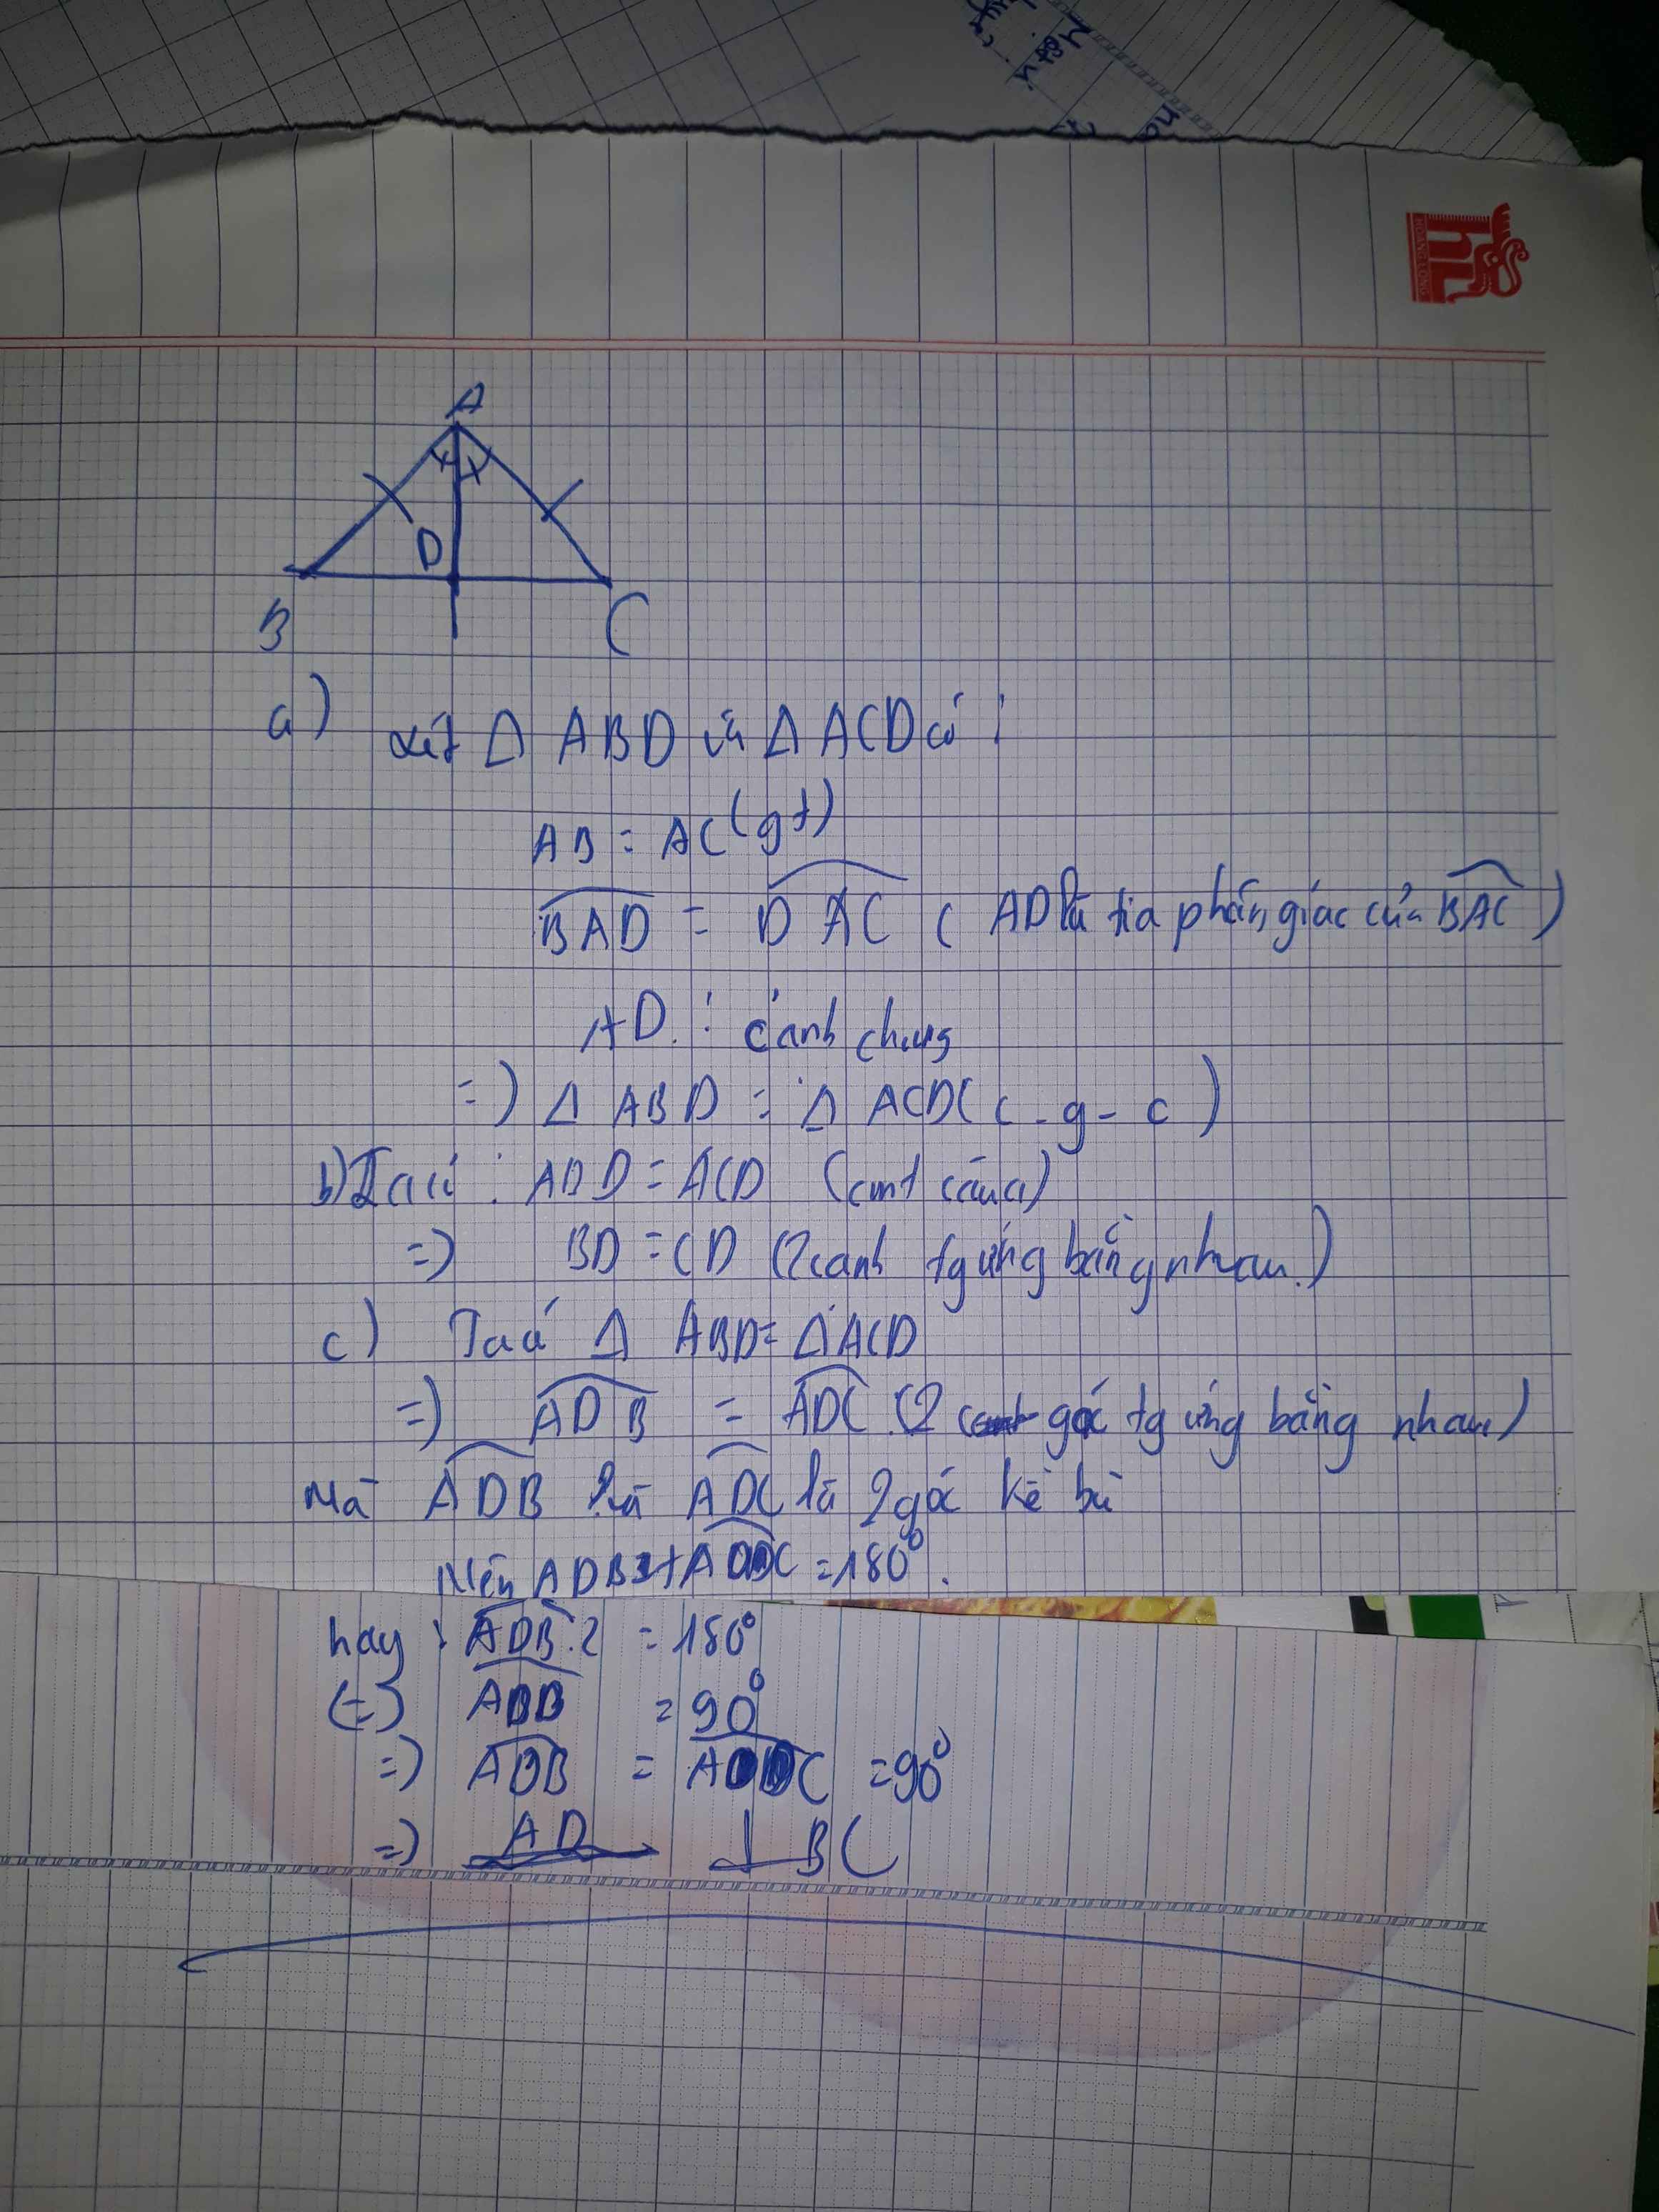 HOANG LONG
A
D
B C
a) xét Δ ABD và Δ ACD có :
AB = AC (gt)
BAD = DAC ( AD là tia phân giác của BAC )
AD : cạnh chung
=) Δ ABD = Δ ACD ( c - g - c )
b) Ta có : ABD = ACD (cmt câu a)
=) BD = CD (2 cạnh tg ứng bằng nhau.)
c) Ta có Δ ABD = Δ ACD
=) ADB = ADC (2 góc tg ứng bằng nhau)
Mà ADB và ADC là 2 góc kề bù
Nên ADB + ADC = 180⁰.
hay : ADB.2 = 180⁰
(=) ADB = 90⁰
=) ADB = ADC = 90⁰
=) AD ⊥ BC